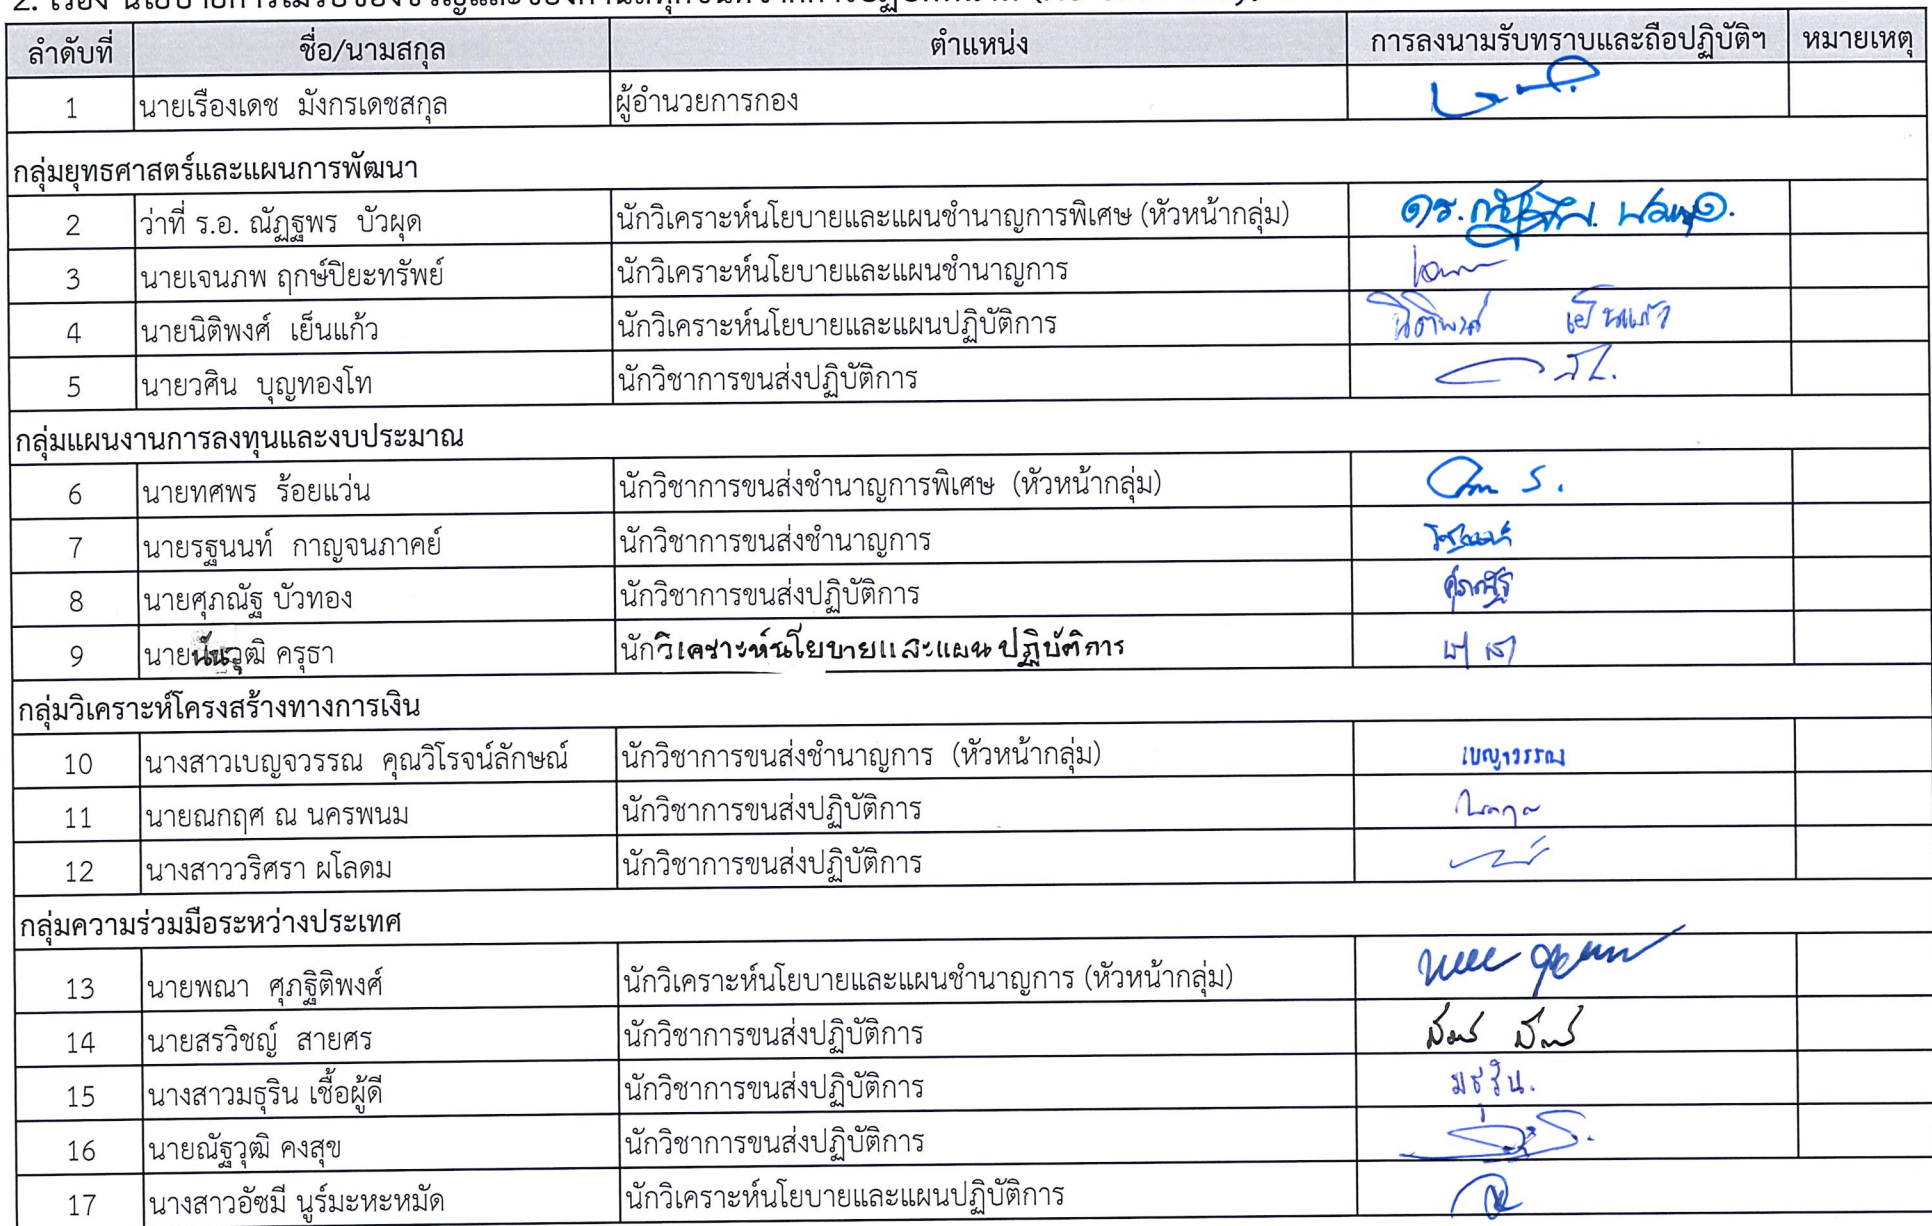 ลำดับที่ ชื่อ/นามสกุล ตำแหน่ง การลงนามรับทราบและถือปฏิบัติฯ หมายเหตุ
1 นายเรืองเดช มังกรเดชสกุล ผู้อำนวยการกอง
กลุ่มยุทธศาสตร์และแผนการพัฒนา
2 ว่าที่ ร.อ. ณัฏฐพร บัวผุด นักวิเคราะห์นโยบายและแผนชำนาญการพิเศษ (หัวหน้ากลุ่ม)
3 นายเจนภพ ฤกษ์ปิยะทรัพย์ นักวิเคราะห์นโยบายและแผนชำนาญการ
4 นายนิติพงศ์ เย็นแก้ว นักวิเคราะห์นโยบายและแผนปฏิบัติการ นิติพงศ์ เย็นแก้ว
5 นายวศิน บุญทองโท นักวิชาการขนส่งปฏิบัติการ
กลุ่มแผนงานการลงทุนและงบประมาณ
6 นายทศพร ร้อยแว่น นักวิชาการขนส่งชำนาญการพิเศษ (หัวหน้ากลุ่ม)
7 นายรฐนนท์ กาญจนภาคย์ นักวิชาการขนส่งชำนาญการ
8 นายศุภณัฐ บัวทอง นักวิชาการขนส่งปฏิบัติการ ศุภณัฐ
9 นายนันวุฒิ ครุธา นักวิเคราะห์นโยบายและแผนปฏิบัติการ
กลุ่มวิเคราะห์โครงสร้างทางการเงิน
10 นางสาวเบญจวรรณ คุณวิโรจน์ลักษณ์ นักวิชาการขนส่งชำนาญการ (หัวหน้ากลุ่ม) เบญจวรรณ
11 นายณกฤศ ณ นครพนม นักวิชาการขนส่งปฏิบัติการ
12 นางสาววริศรา ผโลดม นักวิชาการขนส่งปฏิบัติการ
กลุ่มความร่วมมือระหว่างประเทศ
13 นายพณา ศุภฐิติพงศ์ นักวิเคราะห์นโยบายและแผนชำนาญการ (หัวหน้ากลุ่ม)
14 นายสรวิชญ์ สายศร นักวิชาการขนส่งปฏิบัติการ
15 นางสาวมธุริน เชื้อผู้ดี นักวิชาการขนส่งปฏิบัติการ มธุริน.
16 นายณัฐวุฒิ คงสุข นักวิชาการขนส่งปฏิบัติการ
17 นางสาวอัซมี นูร์มะหะหมัด นักวิเคราะห์นโยบายและแผนปฏิบัติการ